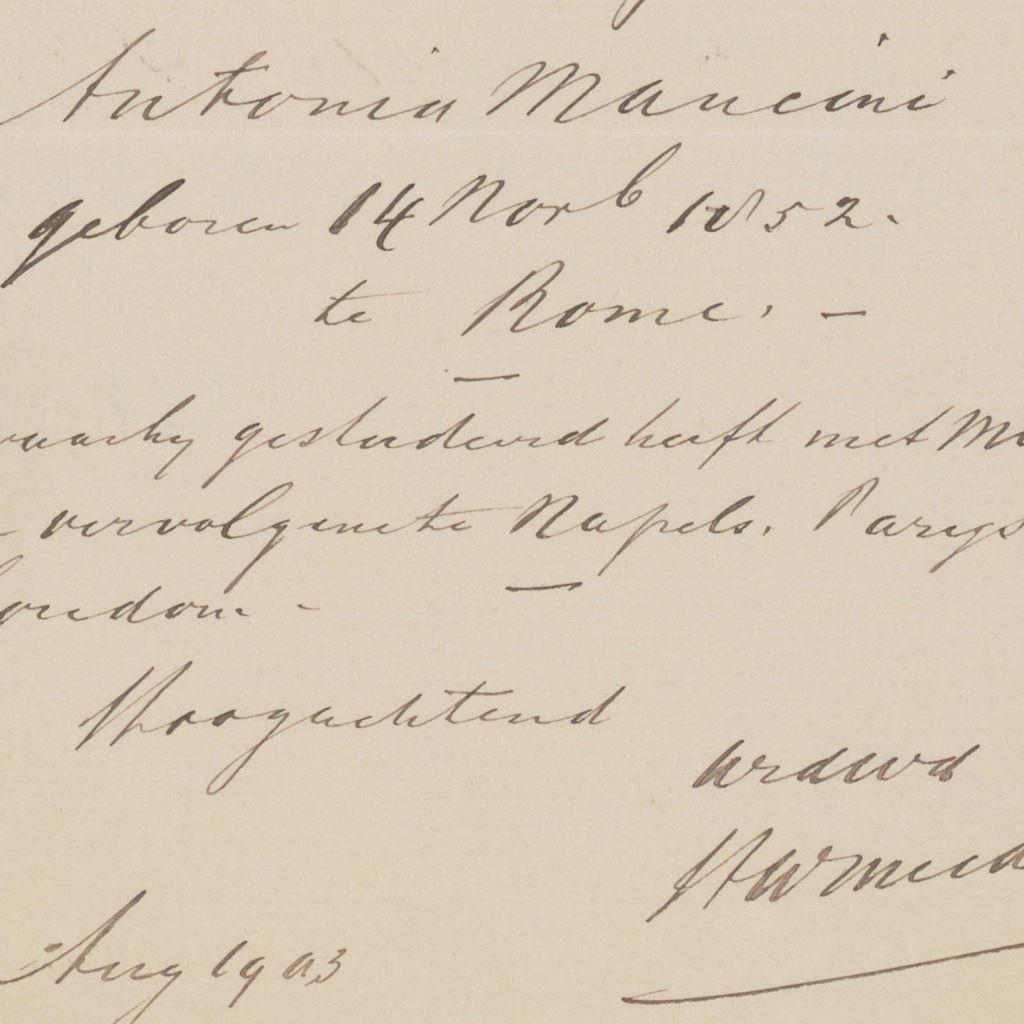 Antonio Mancini
geboren 14 Novb 1852.
te Rome. —
waarhy gestudeerd heeft met
vervolgens te Napels. Parys
Londen -
Hoogachtend
HWMesd
Aug 1903